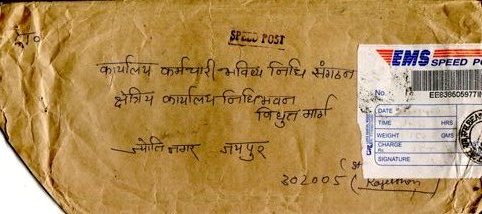 SPEED POST
कार्यालय कर्मचारी भविष्य निधि संगठन
क्षेत्रीय कार्यालय निधि भवन
विधुत मार्ग
ज्योति नगर जयपुर
302005
EMS SPEED PO
No.
EE836605977IN
DATE
TIME HRS
WEIGHT GMS
CHARGE
Rs.
SIGNATURE